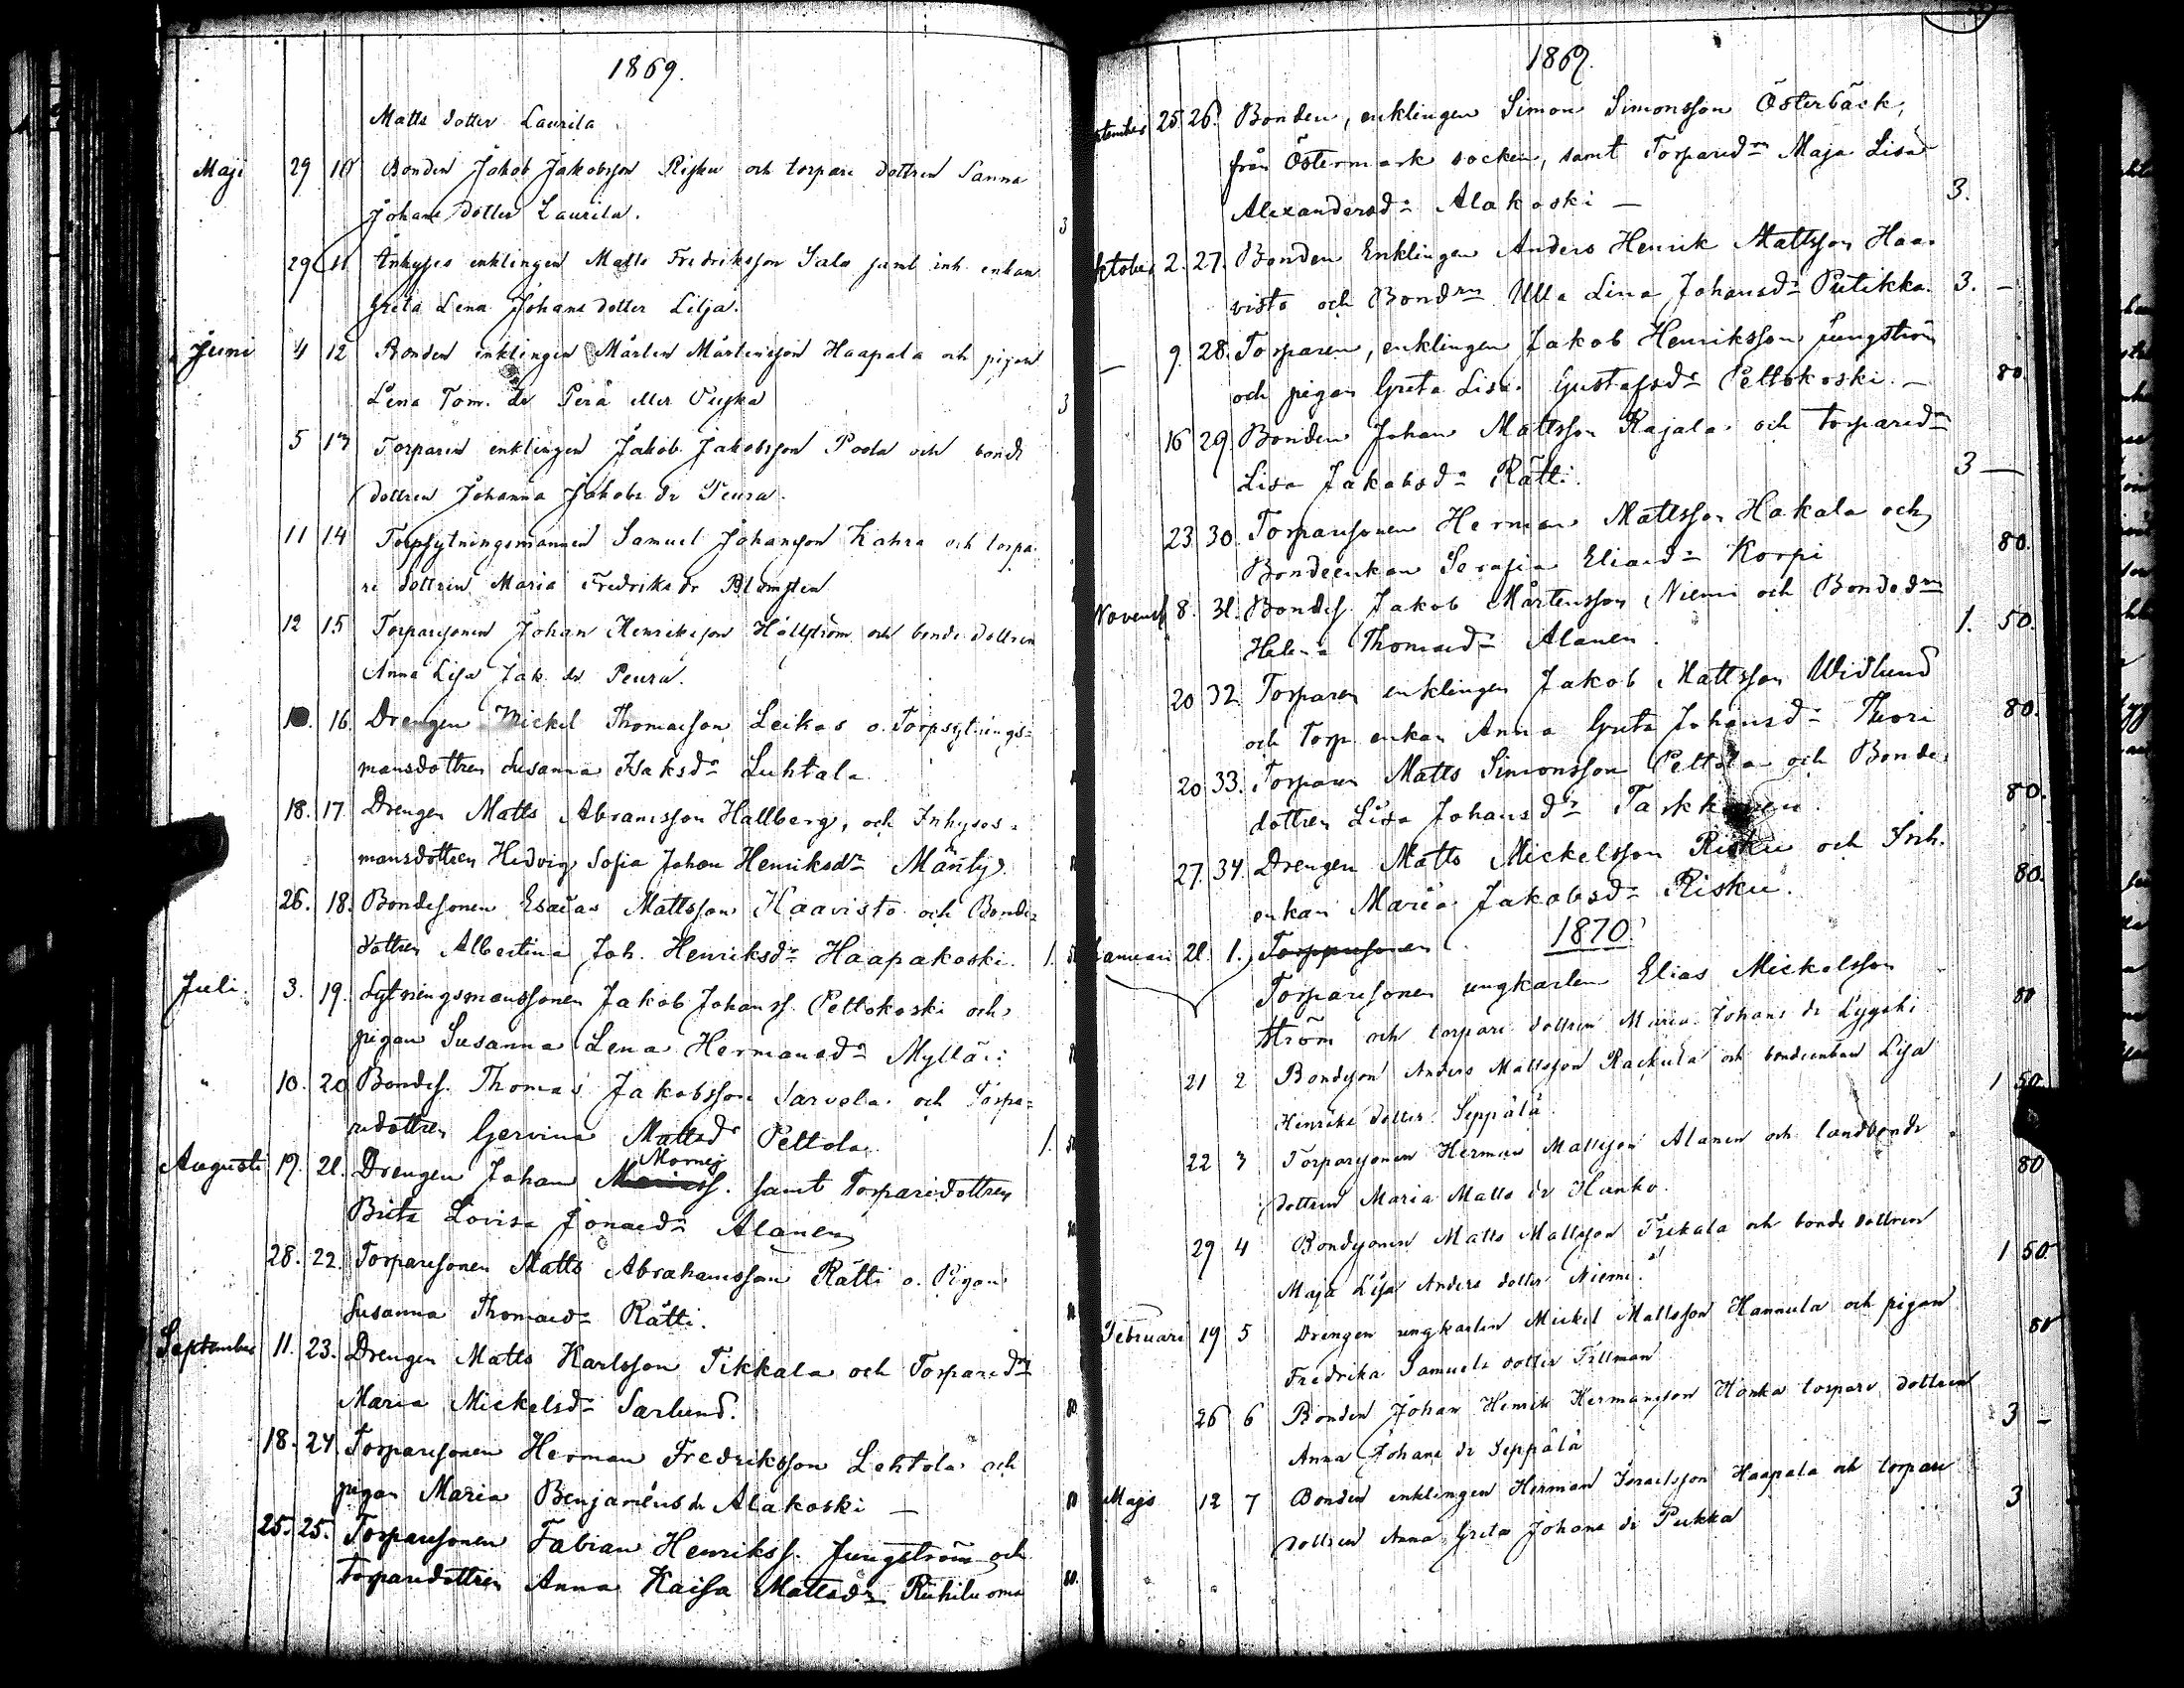 1869.
Matts dotter Laurila
Maji 29 10 Bonden Jakob Jakobsson Risku och torpare dottren Sanna
Johans dotter Laurila. 3
29 11 Inhyses enklingen Matts Fredriksson Salo samt inh. enkan
Greta Lena Johans dotter Lilja.
Juni 4 12 Bonden enklingen Mårten Mårtensson Haapala och pigan
Lena Tom. dr Perä eller 3
5 13 Torparen enklingen Jakob Jakobsson och bonde
dottren Johanna Jakobs dr Peura.
11 14 Torpsytningsmannen Samuel Johansson Kahra och torpa-
re dottren Maria Fredriks dr Blomsten
12 15 Torparesonen Johan Henriksson Hällström och bonde dottren
Anna Lisa Jak. dr Peura.
16. Drengen Mickel Thomasson Leikas o. Torpsytnings-
mansdottren Susanna Isaksdr Luhtala
18. 17 Drengen Matts Abramsson Hallberg, och Inhyses-
mansdottren Hedvig Sofia Johan Henriksdr Mänty.
26. 18. Bondesonen Esaias Mattsson Haavisto och Bonde-
dottren Albertina Joh. Henriksdr Haapakoski. 1. 50
Juli. 3. 19. Sytningsmanssonen Jakob Johanss. Peltokoski och
pigan Susanna Lena Hermansdr Mylläri
" 10. 20 Bondes. Thomas Jakobsson Sarvela och Torpa-
redottren Gervina Mattsdr Peltola. 1. 50
Augusti 17. 21. Drengen Johan samt Torparedottren
Brita Lovisa Jonasdr Alanen
28. 22. Torparesonen Matts Abrahamsson Rätti o. Pigan
Susanna Thomasdr Rätti.
September 11. 23. Drengen Matts Karlsson Tikkala och Torparedrn
Maria Mickelsdr Sarlund. 80
18. 24. Torparesonen Herman Fredriksson Lehtola och
pigan Maria Benjaminsdr Alakoski — 80
25. 25. Torparesonen Fabian Henrikss. Jungström och
Torparedottren Anna Kaisa Mattsdr Riihiluoma 80.
1869.
September 25 26. Bonden, enklingen Simon Simonsson Österbäck,
från Östermark socken, samt Torparedrn Maja Lisa
Alexandersdr Alakoski — 3.
Oktober 2. 27. Bonden Enklingen Anders Henrik Mattsson Haa-
visto och Bondrn Ulla Lina Johansdr Putikka. 3. —
— 9. 28. Torparen, enklingen Jakob Henriksson Jungström
och pigan Greta Lisa Gustafsdr Peltokoski. — 80
16 29. Bonden Johan Mattsson Kajala och torparedrn
Lisa Jakobsdr Rätti. 3 —
23 30. Torparesonen Herman Mattsson Hakala och
Bondeenkan Serafia Eliasdr Korpi 80.
Novemb 8. 31. Bondes. Jakob Mårtensson Niemi och Bondedrn
Helena Thomasdr Alanen. 1. 50.
20 32 Torparen enklingen Jakob Mattsson Widlund
och Torp. enkan Anna Greta Johansdr Tuori 80.
20 33. Torparen Matts Simonsson Peltola och Bonde-
dottren Lisa Johansdr Tarkkanen. 80.
27. 34. Drengen Matts Mickelsson Risku och Inh.
enkan Maria Jakobsdr Risku. 80.
1870.
Januari 21. 1. Torparesonen
Torparesonen ungkarlen Elias Mickelsson
Ström och torpare dottren Maria Johans dr Lygski 80
21 2 Bondeson Anders Mattsson Rackula och bondeenkan Lisa
Henriks dotter Seppälä. 1 50
22 3 Torparesonen Herman Mattsson Alanen och landbonde
dottren Maria Matts dr Hunko. 80
29 4 Bondesonen Matts Mattsson Tikkala och bonde dottren
Maja Lisa Anders dotter Niemi. 1 50
Februari 19 5 Drengen ungkarlen Mickel Mattsson Hannula och pigan
Fredrika Samuels dotter Tillman 80
26 6 Bonden Johan Henrik Hermansson Honka torpare dottren
Anna Johans dr Seppälä 3 —
Majo 12 7 Bonden enklingen Herman Israelsson Haapala och torpare
dottren Anna Greta Johans dr Pukka 3